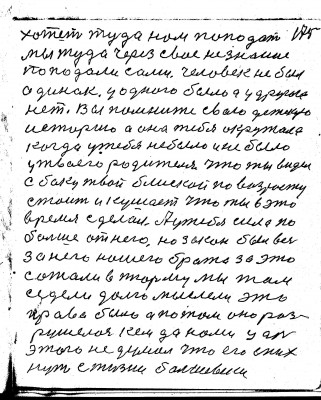 хотет туда нам поподат 175
мы туда через свое незнание
поподали сами. Человек не был
одинак, у одного было а у друга
нет. Вы помните свою детскую
историю а она тебя окружала
когда у тебя небыло и не было
у твоего родителя. Что ты видел
с боку твой блиской по возрасту
стоит и кушает что ты в это
время сделал. А у тебя сила по
болше от него, но закон был вез
за него нашего брата за это
сожали в тюрму мы там
седели долго мыслели это
права было а потом оно раз-
рушелося кем да нами
этого не думал что его с них
нут с жизни балшевики